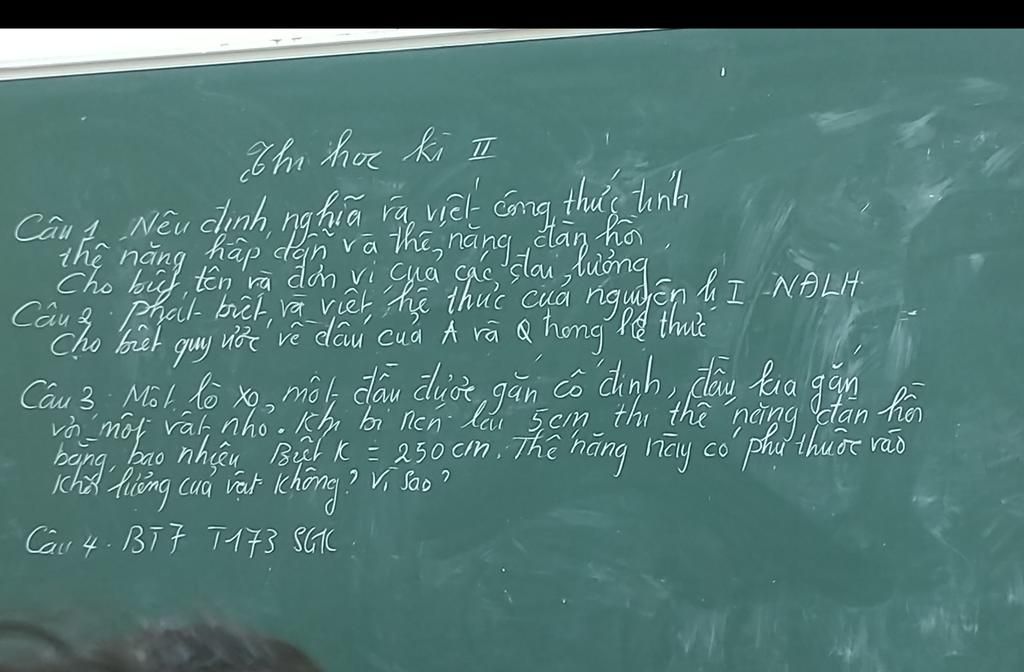 Thi học kì II
Câu 1. Nêu định nghĩa và viết công thức tính
thế năng hấp dẫn và thế năng đàn hồi
Cho biết tên và đơn vị của các đại lượng
Câu 2. Phát biết và viết hệ thức của nguyên lí I NĐLH
Cho biết quy ước về dấu của A và Q trong hệ thức
Câu 3. Một lò xo, một đầu được gắn cố định, đầu kia gắn
với một vật nhỏ. Khi bị nén lại 5cm thì thế năng đàn hồi
bằng bao nhiêu Biết K = 250 cm. Thế năng này có phụ thuộc vào
khối lượng của vật không? Vì sao?
Câu 4. BT7 T173 SGK